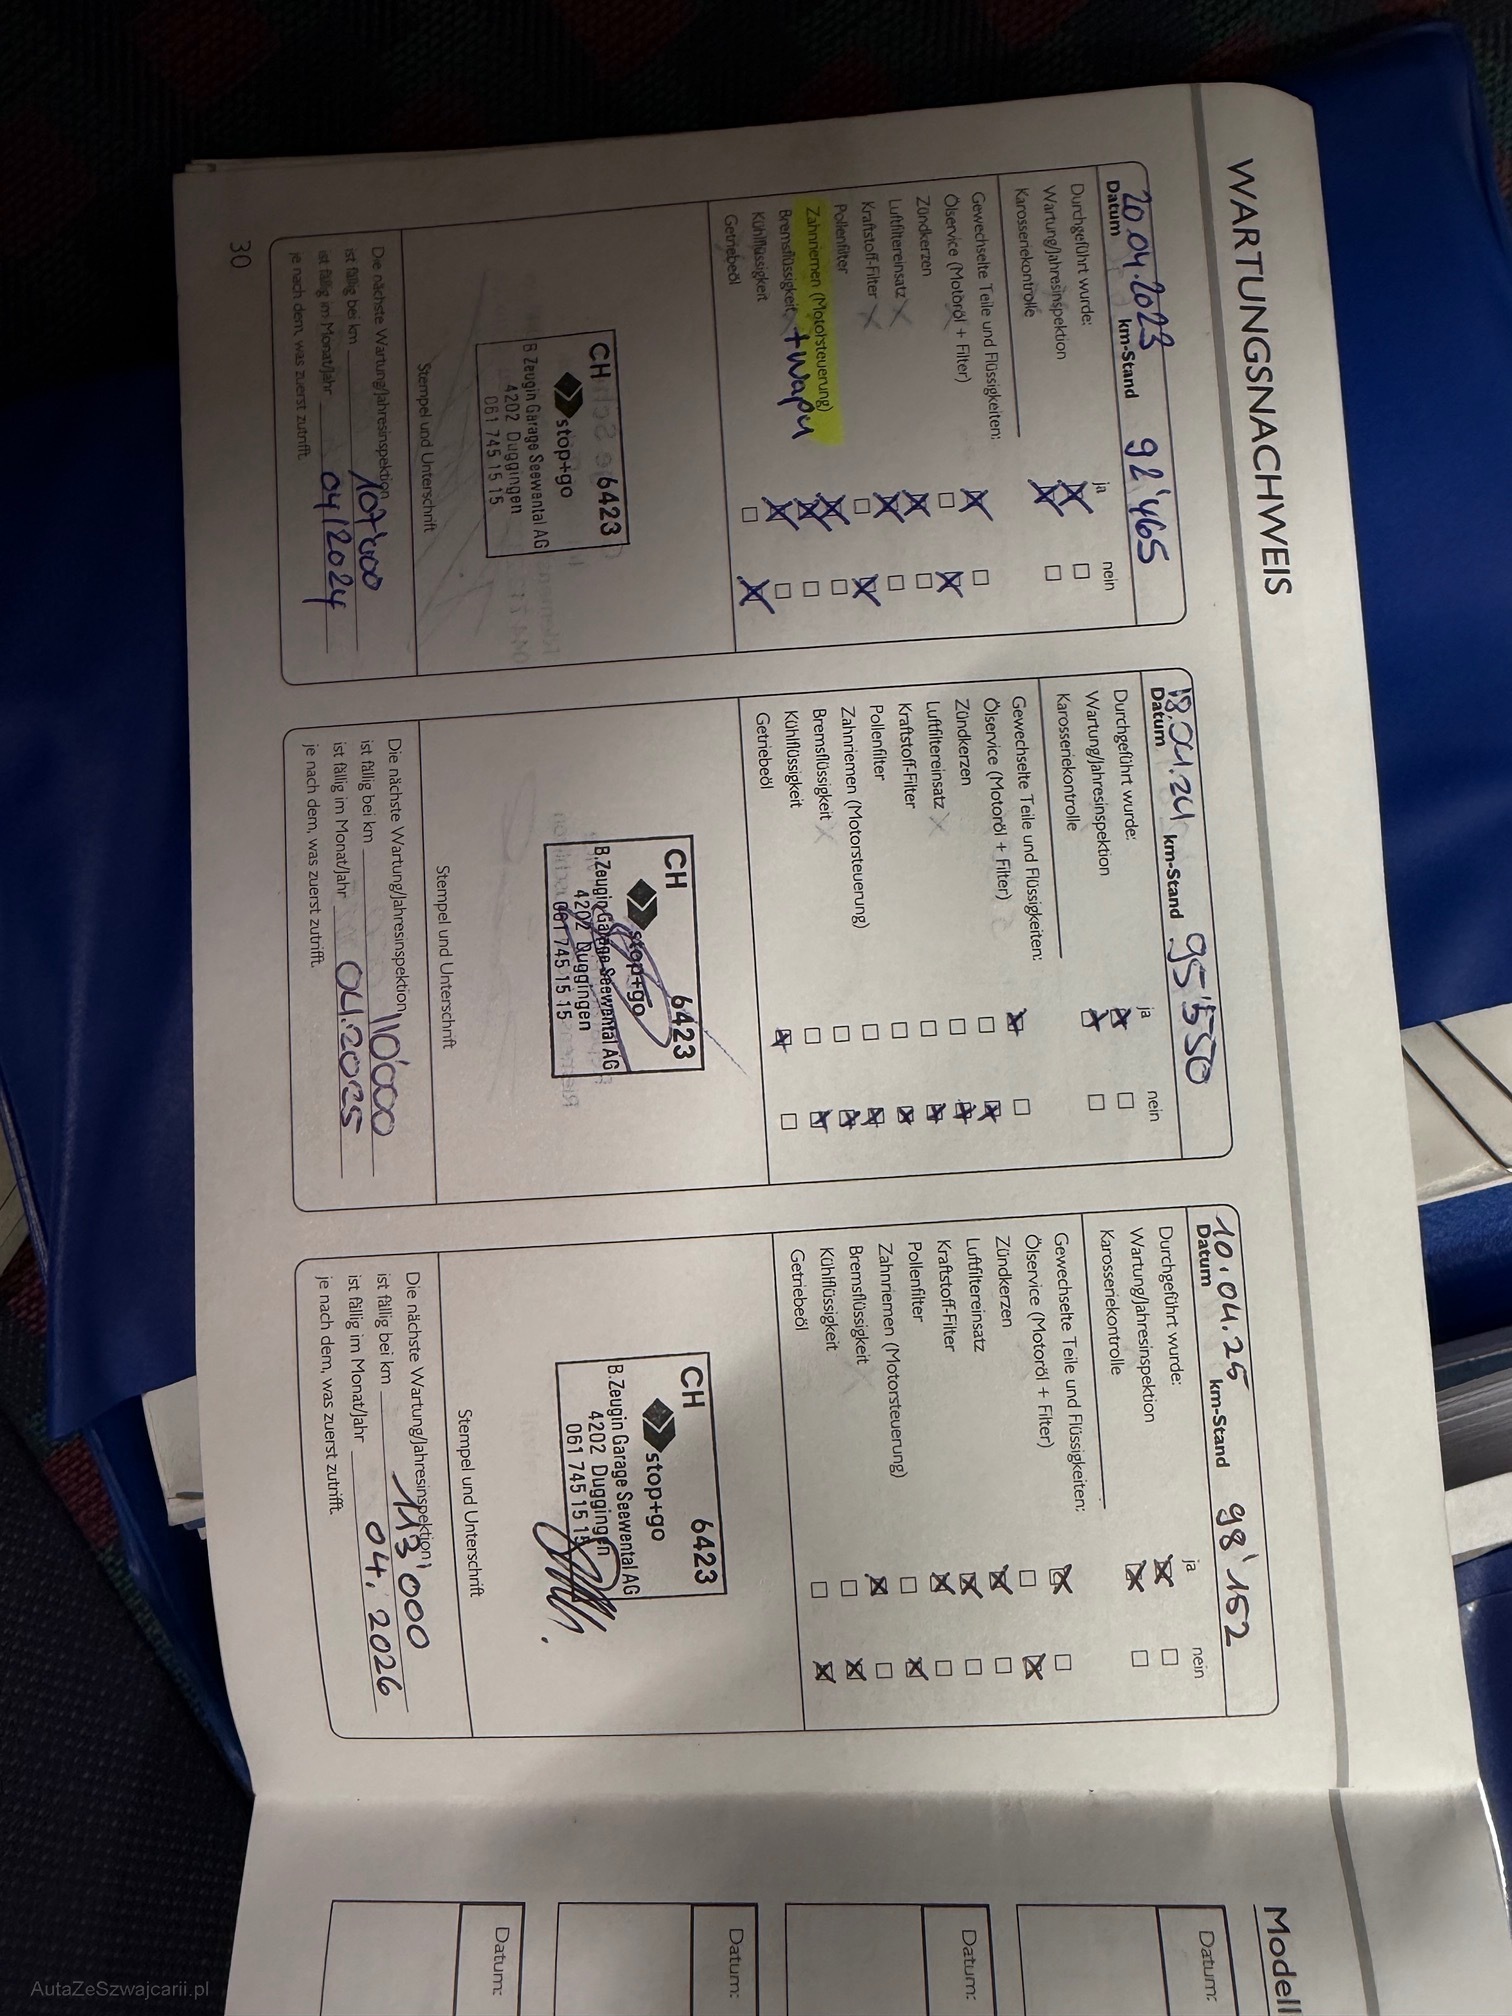 WARTUNGSNACHWEIS
20.04.2023 92'465
Datum km-Stand
ja nein
Durchgeführt wurde:
Wartung/Jahresinspektion
Karosseriekontrolle
Gewechselte Teile und Flüssigkeiten:
Ölservice (Motoröl + Filter)
Zündkerzen
Luftfiltereinsatz
Kraftstoff-Filter
Pollenfilter
Zahnriemen (Motorsteuerung)
Bremsflüssigkeit + Wapu
Kühlflüssigkeit
Getriebeöl
CH 6423
stop+go
B.Zeugin Garage Seewental AG
4202 Duggingen
061 745 15 15
Stempel und Unterschrift
Die nächste Wartung/Jahresinspektion
ist fällig bei km 107'000
ist fällig im Monat/Jahr 04/2024
je nach dem, was zuerst zutrifft.
30
18.04.24 95'550
Datum km-Stand
ja nein
Durchgeführt wurde:
Wartung/Jahresinspektion
Karosseriekontrolle
Gewechselte Teile und Flüssigkeiten:
Ölservice (Motoröl + Filter)
Zündkerzen
Luftfiltereinsatz
Kraftstoff-Filter
Pollenfilter
Zahnriemen (Motorsteuerung)
Bremsflüssigkeit
Kühlflüssigkeit
Getriebeöl
CH 6423
stop+go
B.Zeugin Garage Seewental AG
4202 Duggingen
061 745 15 15
Stempel und Unterschrift
Die nächste Wartung/Jahresinspektion
ist fällig bei km 110'000
ist fällig im Monat/Jahr 04.2025
je nach dem, was zuerst zutrifft.
10.04.25 98'152
Datum km-Stand
ja nein
Durchgeführt wurde:
Wartung/Jahresinspektion
Karosseriekontrolle
Gewechselte Teile und Flüssigkeiten:
Ölservice (Motoröl + Filter)
Zündkerzen
Luftfiltereinsatz
Kraftstoff-Filter
Pollenfilter
Zahnriemen (Motorsteuerung)
Bremsflüssigkeit
Kühlflüssigkeit
Getriebeöl
CH 6423
stop+go
B.Zeugin Garage Seewental AG
4202 Duggingen
061 745 15 15
Stempel und Unterschrift
Die nächste Wartung/Jahresinspektion
ist fällig bei km 113'000
ist fällig im Monat/Jahr 04.2026
je nach dem, was zuerst zutrifft.
Modell
Datum:
Datum:
Datum:
Datum:
AutaZeSzwajcarii.pl